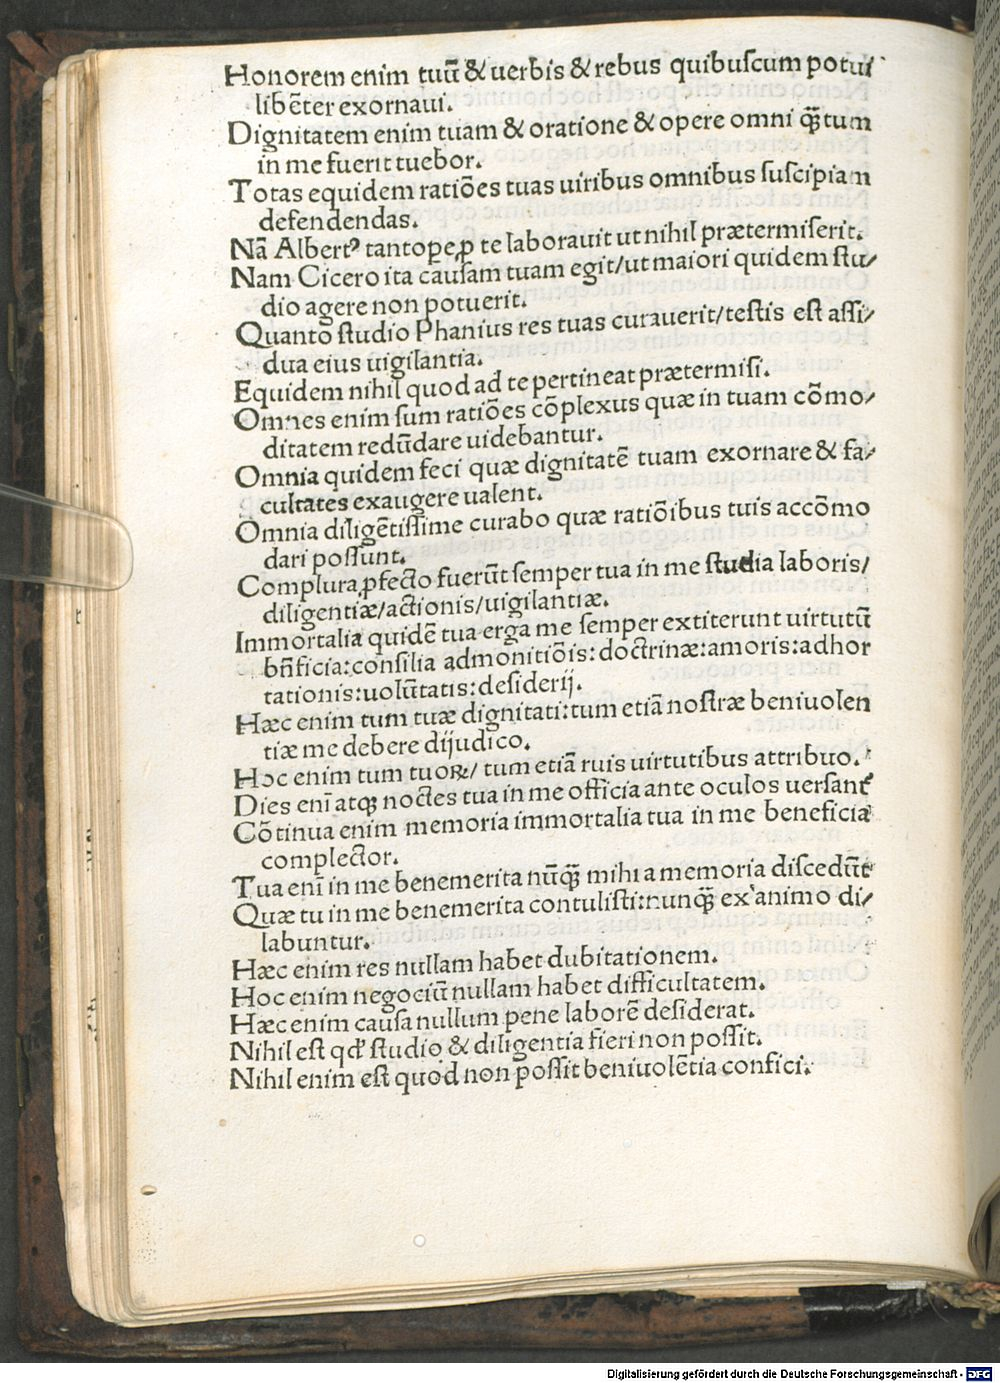 Honorem enim tuū & uerbis & rebus quibuſcum potui
libēter exornaui.
Dignitatem enim tuam & oratione & opere omni q̃tum
in me fuerit tuebor.
Totas equidem ratiōes tuas uiribus omnibus ſuſcipiam
defendendas.
Nā Albertꝰ tantope ꝓ te laborauit ut nihil prætermiſerit.
Nam Cicero ita cauſam tuam egit/ut maiori quidem ſtu/
dio agere non potuerit.
Quanto ſtudio Phanius res tuas curauerit/teſtis eſt aſſi/
dua eius uigilantia.
Equidem nihil quod ad te pertineat prætermiſi.
Omnes enim ſum ratiōes cōplexus quæ in tuam cōmo/
ditatem redūdare uidebantur.
Omnia quidem feci quæ dignitatē tuam exornare & fa/
cultates exaugere ualent.
Omnia diligētiſſime curabo quæ ratiōibus tuis accōmo
dari poſſunt.
Complura ꝓfecto fuerūt ſemper tua in me ſtudia laboris/
diligentiæ/actionis/uigilantiæ.
Immortalia quidē tua erga me ſemper extiterunt uirtutū
bn̄ficia:conſilia admonitiōis:doctrinæ:amoris:adhor
tationis:uolūtatis:deſiderij.
Hæc enim tum tuæ dignitati:tum etiā noſtræ beniuolen
tiæ me debere dijudico.
Hoc enim tum tuoꝝ/ tum etiā ruis uirtutibus attribuo.
Dies enī atqꝫ noctes tua in me officia ante oculos uerſant᷑
Cōtinua enim memoria immortalia tua in me beneficia
complector.
Tua enī in me benemerita nūq̃ mihi a memoria diſcedūt
Quæ tu in me benemerita contuliſti:nunq̃ ex animo di/
labuntur.
Hæc enim res nullam habet dubitationem.
Hoc enim negociū nullam habet difficultatem.
Hæc enim cauſa nullum pene laborē deſiderat.
Nihil eſt qđ ſtudio & diligentia fieri non poſſit.
Nihil enim eſt quod non poſſit beniuolētia confici.
Digitalisierung gefördert durch die Deutsche Forschungsgemeinschaft - DFG